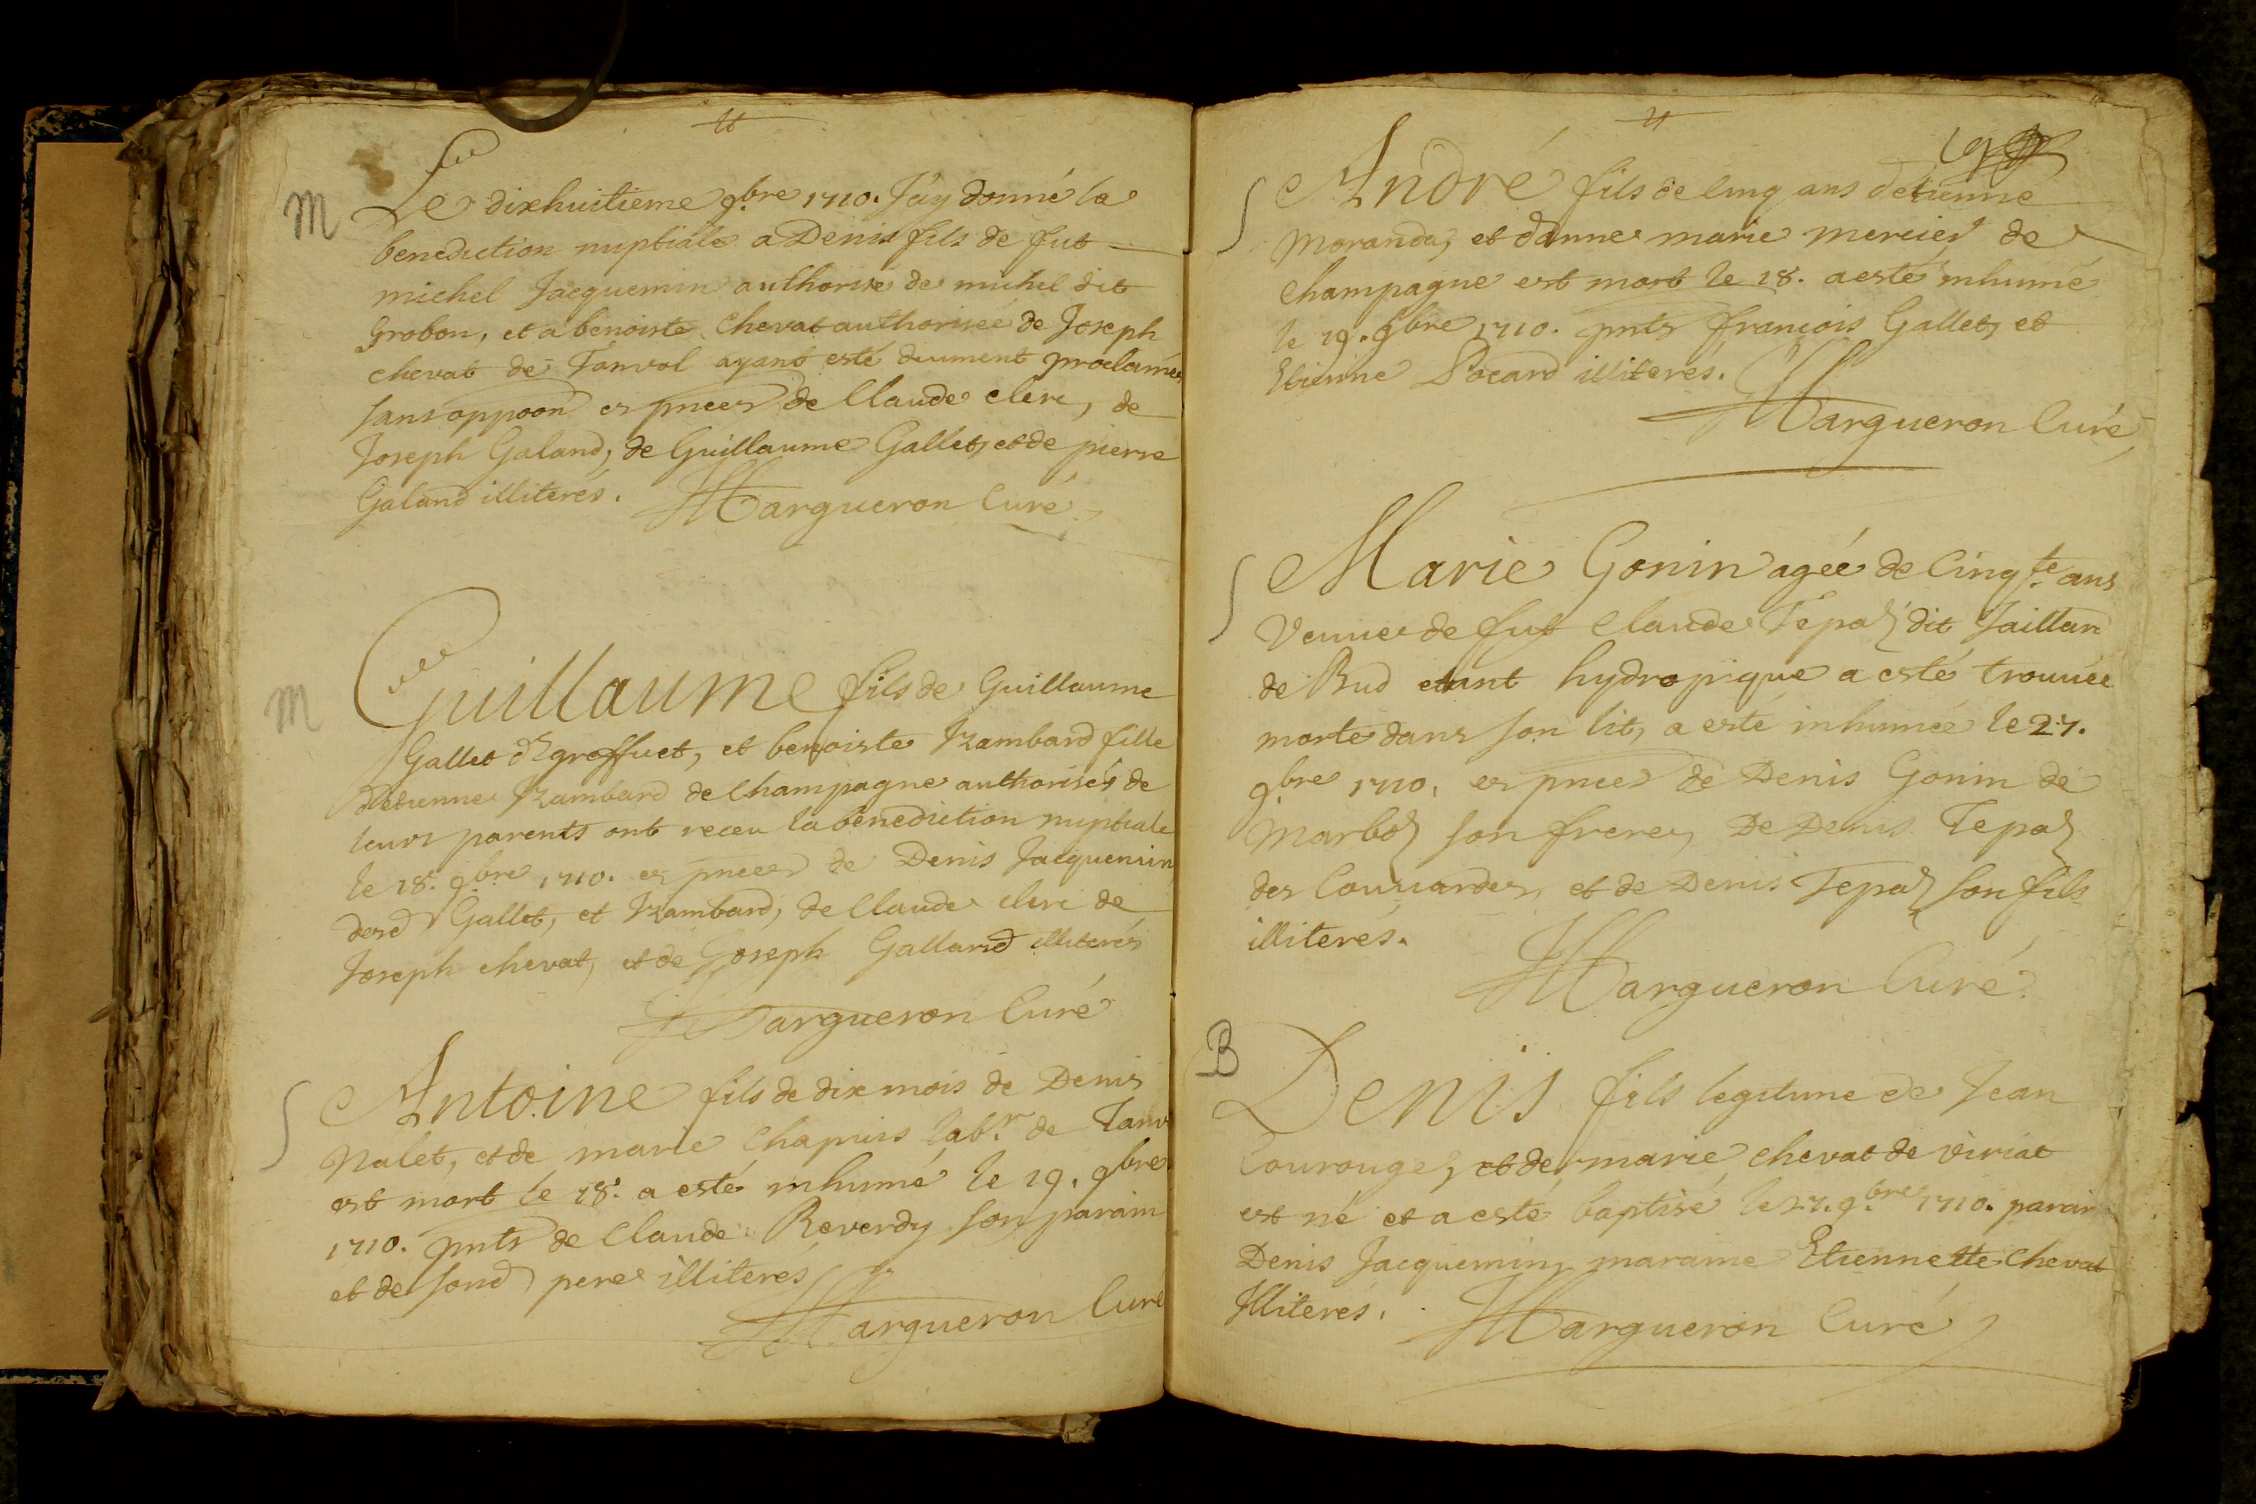 M
Le dixhuitieme 9bre 1710. J'ay donné la
benediction nuptiale a Denis fils de fut
michel Jacquemin authorisé de michel dit
Grobon, et a benoiste Chevat authorisée de Joseph
chevat de Tanvol ayant esté duument proclamés
sans oppoon es pnces de Claude clerc, de
Joseph Galand, de Guillaume Gallet, et de pierre
Galand illiterés. Margueron Curé
M
Guillaume fils de Guillaume
Gallet dt groffuet, et benoiste Rambard fille
d'etienne Rambard de Champagne authorisés de
leurs parents ont receu la benediction nuptiale
le 18. 9bre 1710. es pnces de Denis Jacquemin
desd Gallet, et Rambard, de Claude clerc de
Joseph chevat, et de Joseph Galland illiterés
Margueron Curé
S
Antoine fils de dix mois de Denis
Nalet, et de marie Chapuis labr. de Tanv
est mort le 18. a esté inhumé le 19. 9bre
1710. pnts de Claude Reverdy son parain
et de sond pere illiterés
Margueron Curé
S
André fils de cinq ans d'etienne
Morandas et d'anne marie mercier de
Champagne est mort le 18. a esté inhumé
le 19. 9bre 1710. pnts francois Gallet, et
Etienne Pocard illiterés.
Margueron Curé
S
Marie Gonin agée de Cinqte ans
Veuue de fut Claude Tepaz dit Jaillan
de Rud etant hydropique a esté trouuée
morte dans son lit, a esté inhumée le 27.
9bre 1710. es pnces de Denis Gonin de
Marboz son frere, De Denis Tepaz
des Couuardes, et de Denis Tepaz son fils
illiterés.
Margueron Curé
B
Denis fils legitime de Jean
Courouge, et de marie chevat de viriat
est né et a esté baptisé le 27. 9bre 1710. parain
Denis Jacquemin, maraine Etiennette Chevat
Illiterés. Margueron Curé